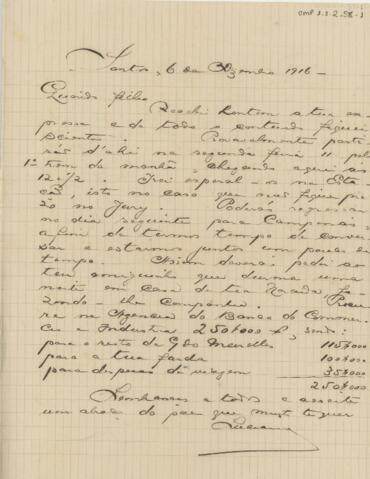 CMP 2.1.2.58-1
Santos, 6 de Dezembro 1916 -
Querido filho
Recebi hontem a tua ex-
pressa e de todo o conteudo fiquei
sciente. Provavelmente parti-
rás d'ahi na segunda feira 11 pelo
1º trem da manhã, chegando aqui as
12 1/2. Irei esperal-o na Esta-
ção, isto no caso que não fique pre-
so no Jury. Poderás regressar
no dia seguinte para Campinas,
a fim de termos tempo de conver-
sar e estarmos juntos um pouco de
tempo. Assim deverás pedir ao
teu que durma uma
noite em casa de tia
fazendo-lhe companhia. Procu-
ra na Agencia do Banco do Commer-
cio e Industria 250$000 sendo:
para o resto de Meirelles 115$000
para a tua farda 100$000
para despezas de viagem 35$000
250$000
Lembranças a todos e acceite
um abraço do pae que muito te quer